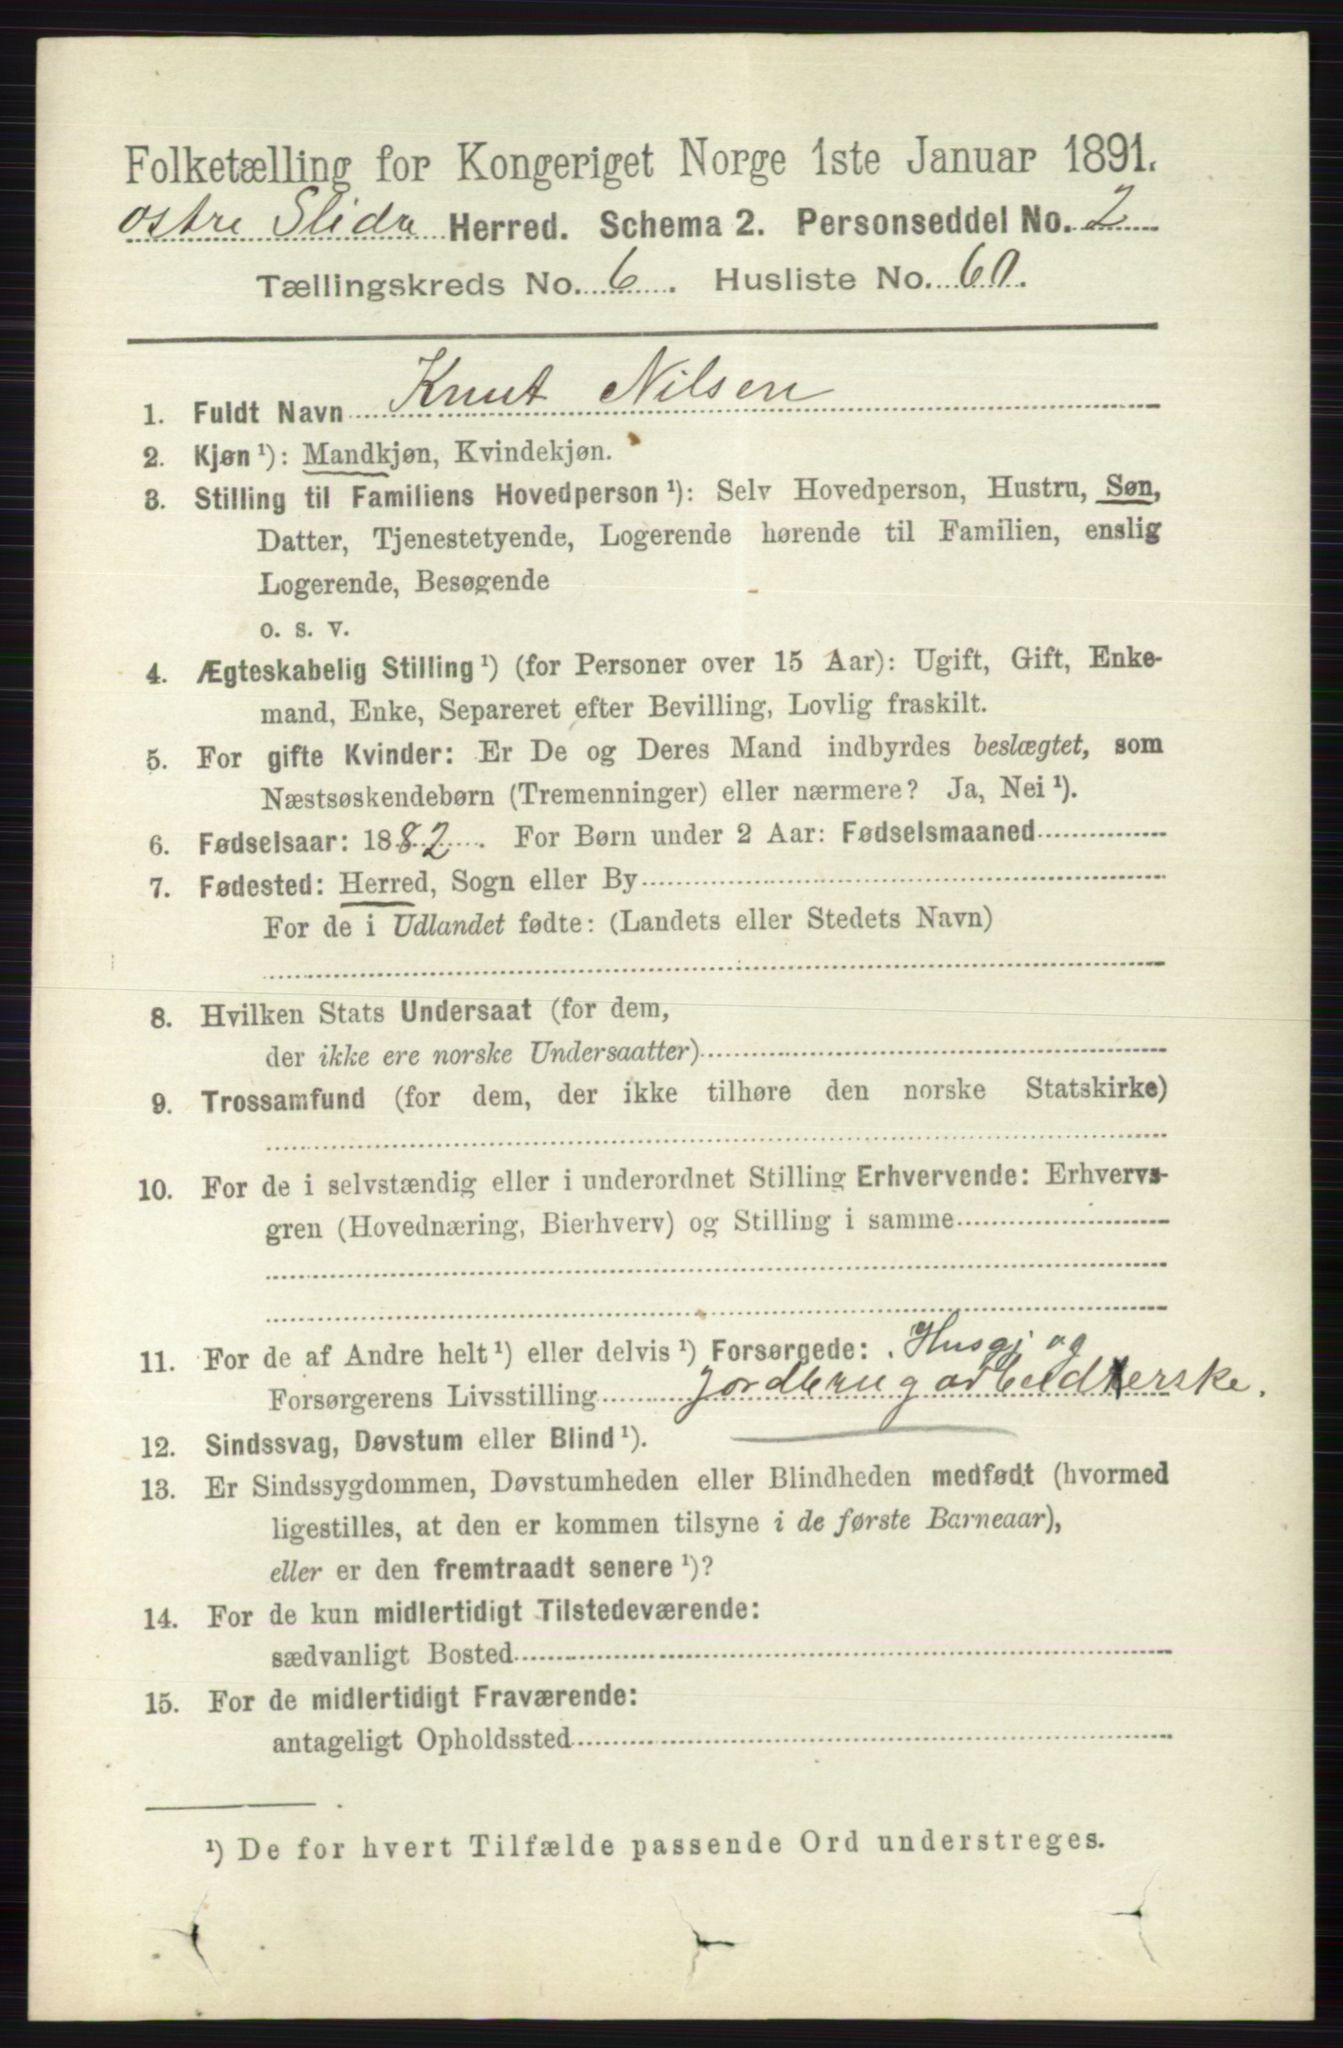 Folketælling for Kongeriget Norge 1ste Januar 1891.
østre Slidre Herred. Schema 2. Personseddel No. 2
Tællingskreds No. 6. Husliste No. 60.
1. Fuldt Navn Knut Nilsen
2. Kjøn ¹): Mandkjøn, Kvindekjøn.
3. Stilling til Familiens Hovedperson ¹): Selv Hovedperson, Hustru, Søn,
Datter, Tjenestetyende, Logerende hørende til Familien, enslig
Logerende, Besøgende
o. s. v.
4. Ægteskabelig Stilling ¹) (for Personer over 15 Aar): Ugift, Gift, Enke-
mand, Enke, Separeret efter Bevilling, Lovlig fraskilt.
5. For gifte Kvinder: Er De og Deres Mand indbyrdes beslægtet, som
Næstsøskendebørn (Tremenninger) eller nærmere? Ja, Nei ¹).
6. Fødselsaar: 1882. For Børn under 2 Aar: Fødselsmaaned
7. Fødested: Herred, Sogn eller By
For de i Udlandet fødte: (Landets eller Stedets Navn)
8. Hvilken Stats Undersaat (for dem,
der ikke ere norske Undersaatter)
9. Trossamfund (for dem, der ikke tilhøre den norske Statskirke)
10. For de i selvstændig eller i underordnet Stilling Erhvervende: Erhvervs-
gren (Hovednæring, Bierhverv) og Stilling i samme
11. For de af Andre helt ¹) eller delvis ¹) Forsørgede: Husgj og
Forsørgerens Livsstilling jordbrugarbeiderske.
12. Sindssvag, Døvstum eller Blind ¹).
13. Er Sindssygdommen, Døvstumheden eller Blindheden medfødt (hvormed
ligestilles, at den er kommen tilsyne i de første Barneaar),
eller er den fremtraadt senere ¹)?
14. For de kun midlertidigt Tilstedeværende:
sædvanligt Bosted
15. For de midlertidigt Fraværende:
antageligt Opholdssted
¹) De for hvert Tilfælde passende Ord understreges.